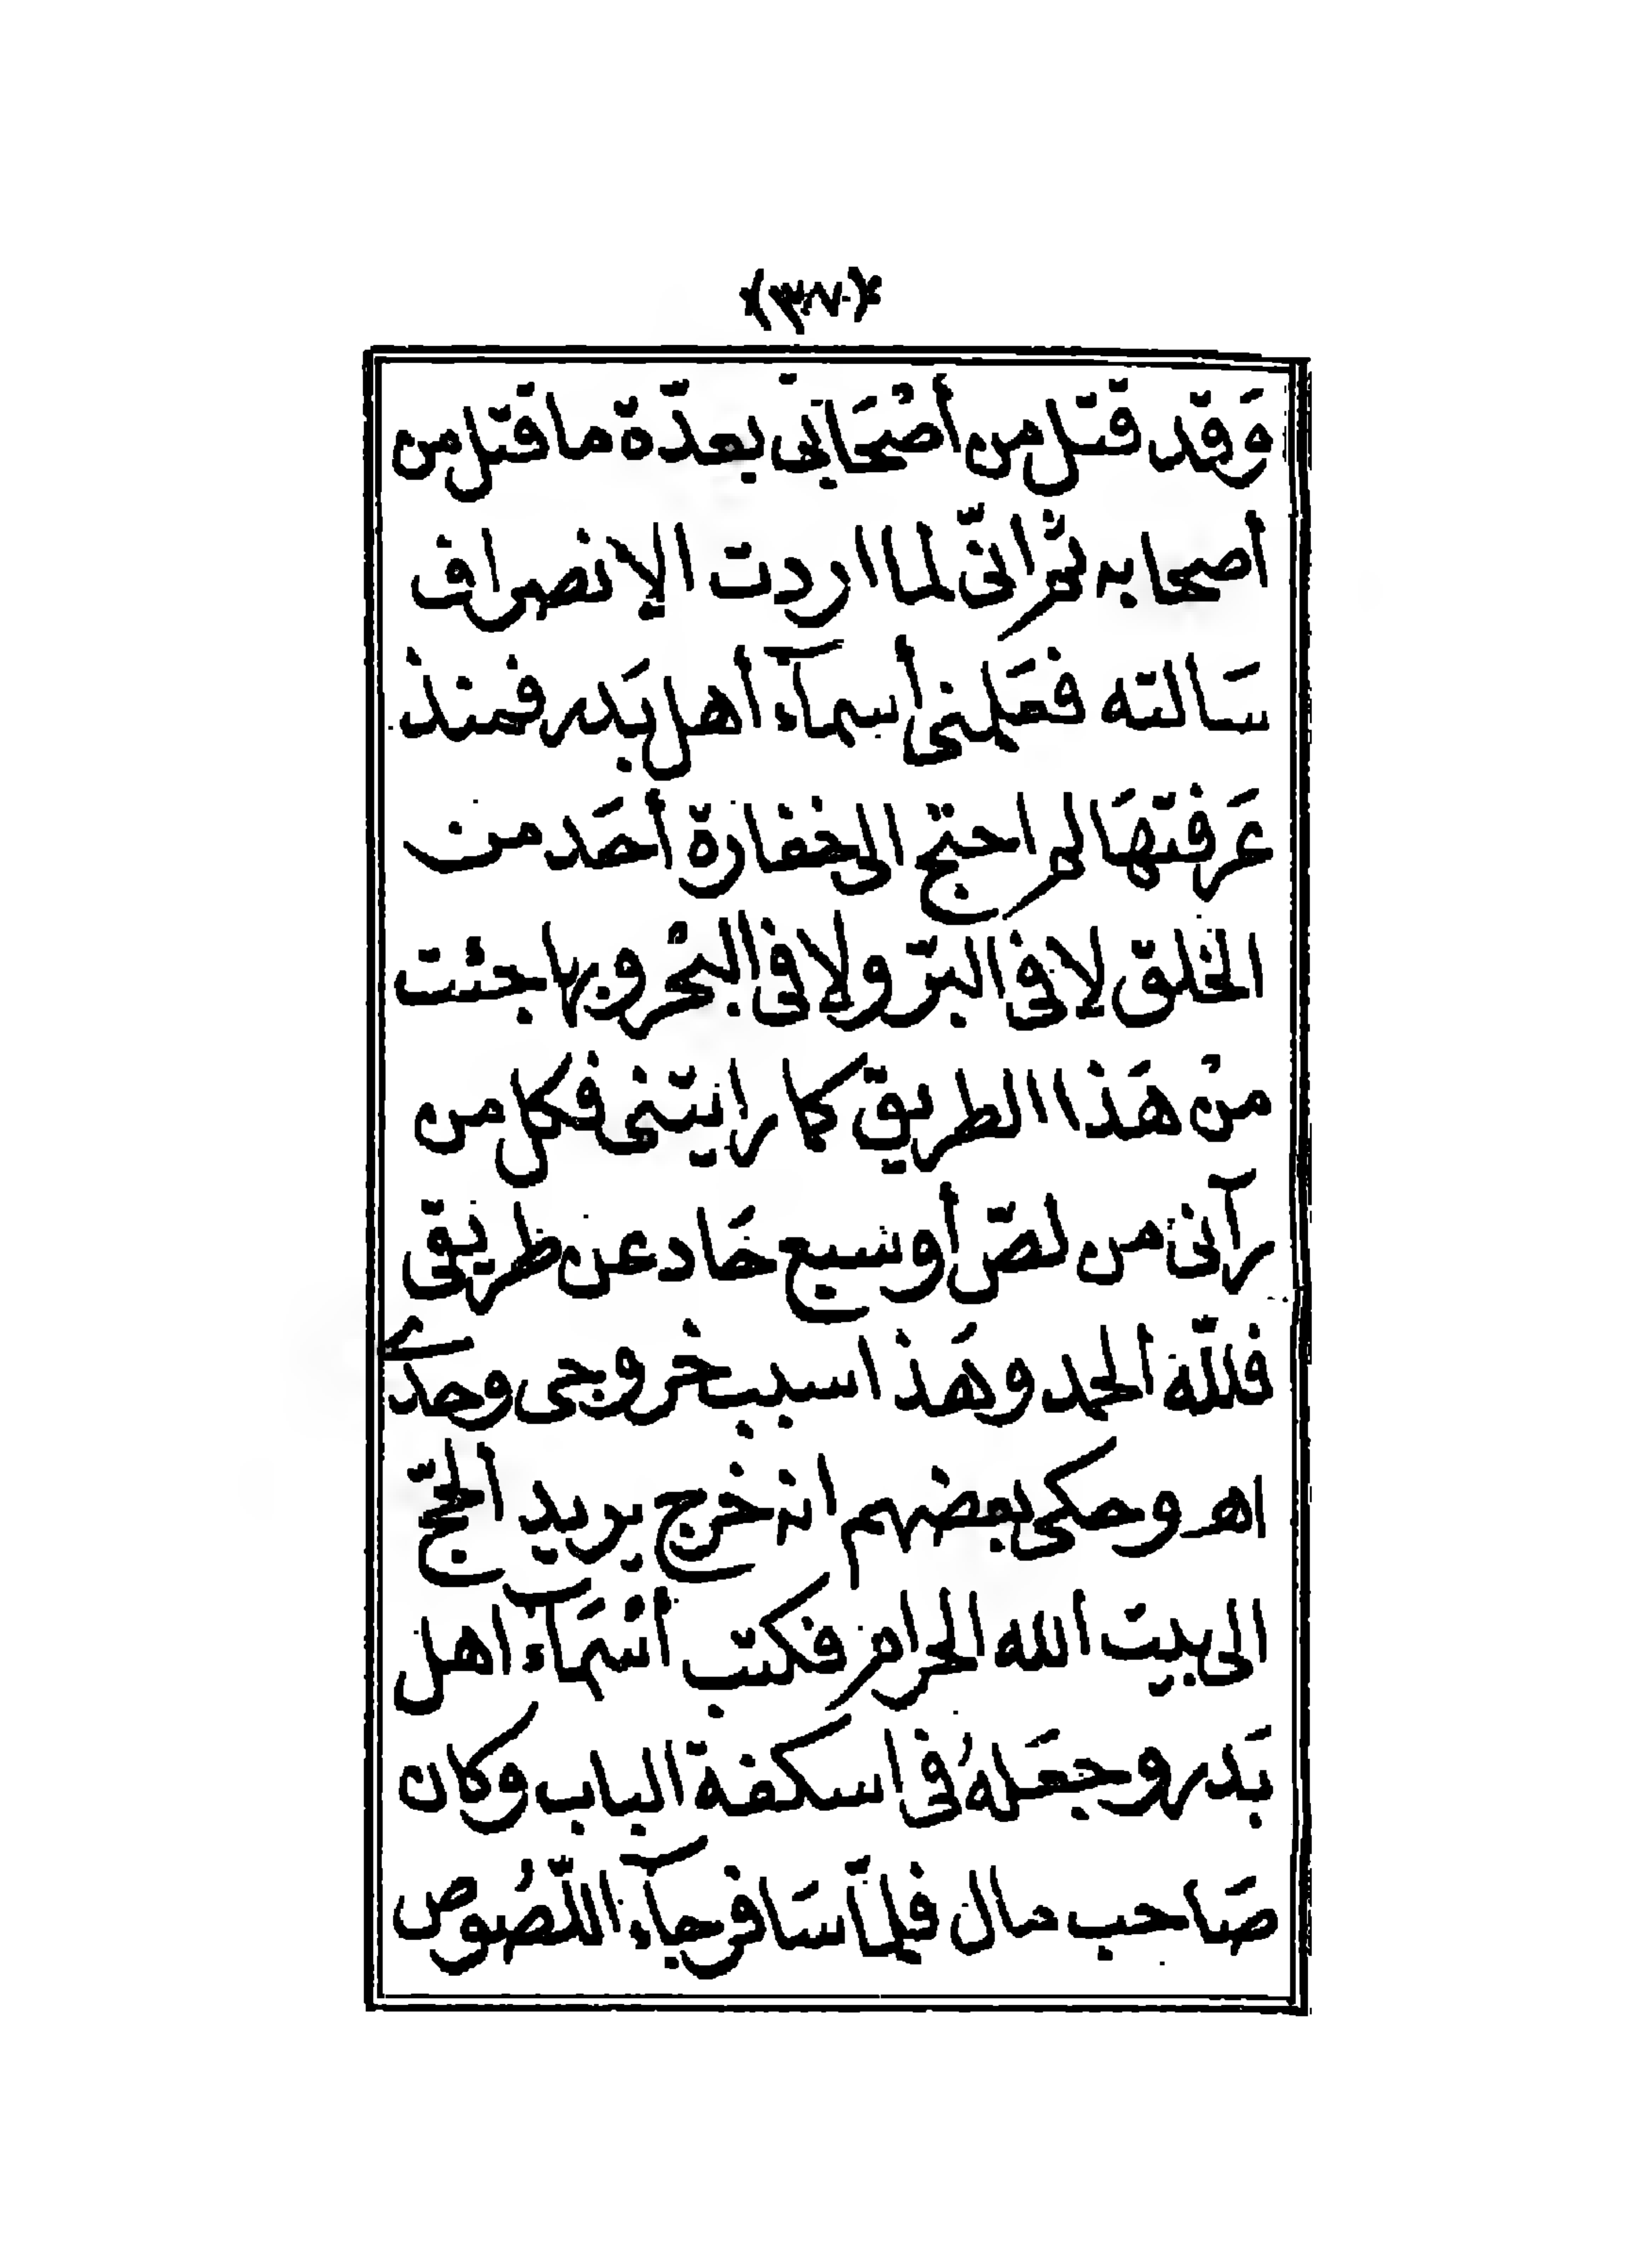 (٣٨٠)
وَقد قتل من أصْحَابي بعدّة ما قتل من
أصحابه ثم انّى لما اردت الإنصراف
سَالته فعَلمنى أسمآء أهل بَدر فمنذ
عَرفتهَا لم احتج الى خفارة أحَد من
الخلق لا فى البرّ ولا فى البحْر وبها جئت
منْ هَذا الطريق كما رايتنى فكل من
رآنى من لصّ أو سبع حَاد عن طريقى
فللّه الحمد وهَذا سبب خروجى وحدى
اهـ وحكى بعضهم انه خرج يريد الحجّ
الى بيت الله الحرام فكتب أسْمَآء اهل
بَدر وجعَلهُ فى اسكفة الباب وكان
صَاحب مال فلمّا سَافر جآء اللّصُوص